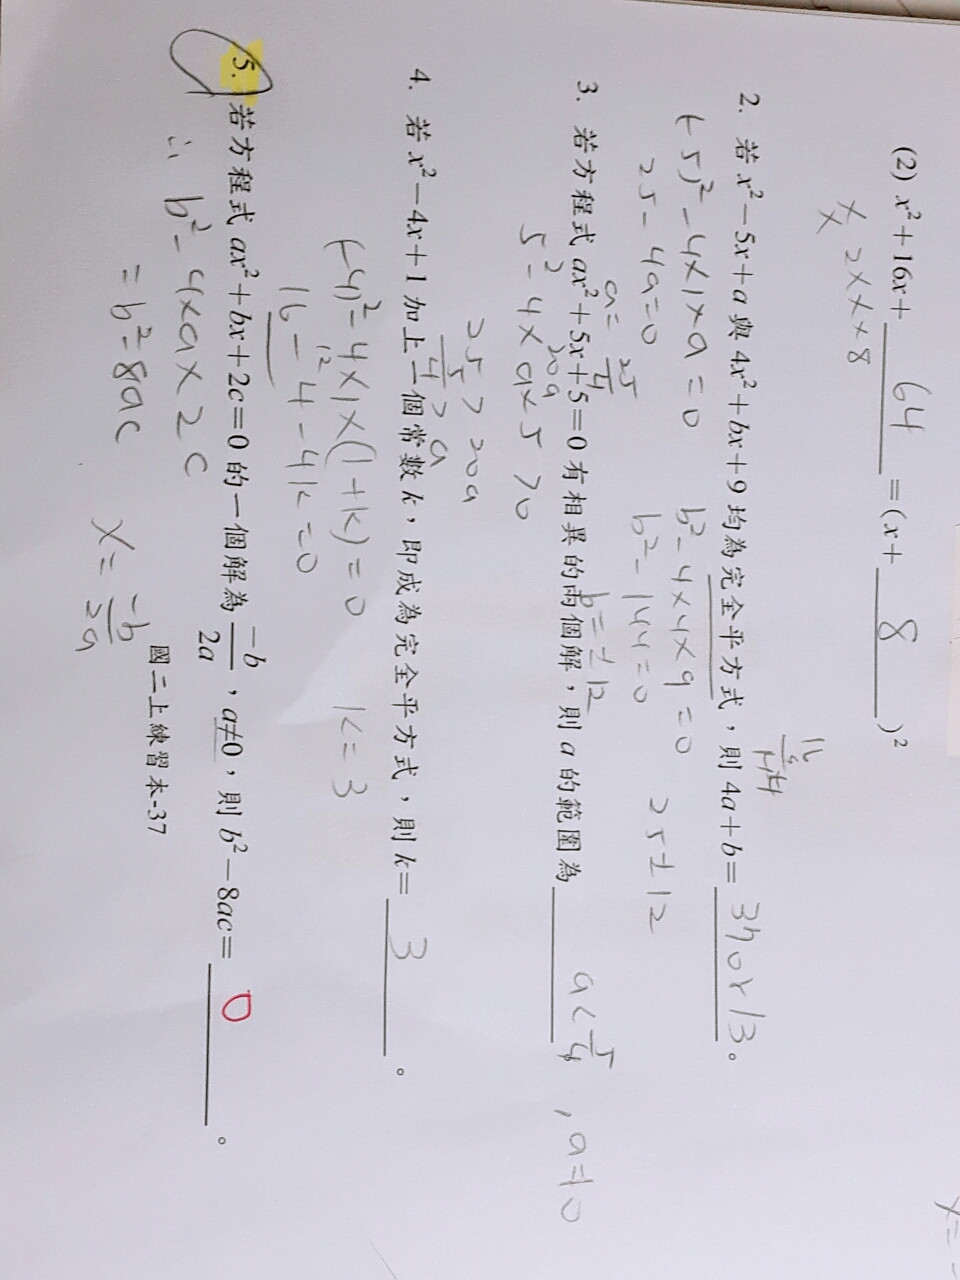 (2) x²+16x+ 64 =(x+ 8 )²
2×x×8
2. 若 x²−5x+a 與 4x²+bx+9 均為完全平方式，則 4a+b= 37or13 。
(-5)²-4×1×a=0 b²-4×4×9=0
25-4a=0 b²-144=0 25±12
a=25/4 b=±12
3. 若方程式 ax²+5x+5=0 有相異的兩個解，則 a 的範圍為 a<5/4 , a≠0
5²-4×a×5>0
20a
25>20a
5/4>a
4. 若 x²−4x+1 加上一個常數 k，即成為完全平方式，則 k= 3 。
(-4)²-4×1×(1+k)=0 k=3
16-4-4k=0
12
5. 若方程式 ax²+bx+2c=0 的一個解為 −b/2a，a≠0，則 b²−8ac= 0 。
∴ b²-4×a×2c
=b²-8ac
x=-b/2a
國二上練習本-37